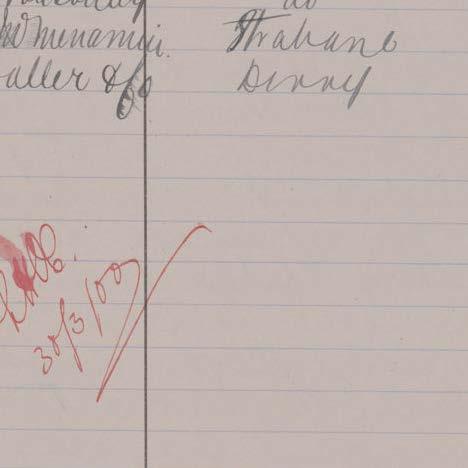 do
McMenamin. Strabane
aller & Co Derry
30/3/00